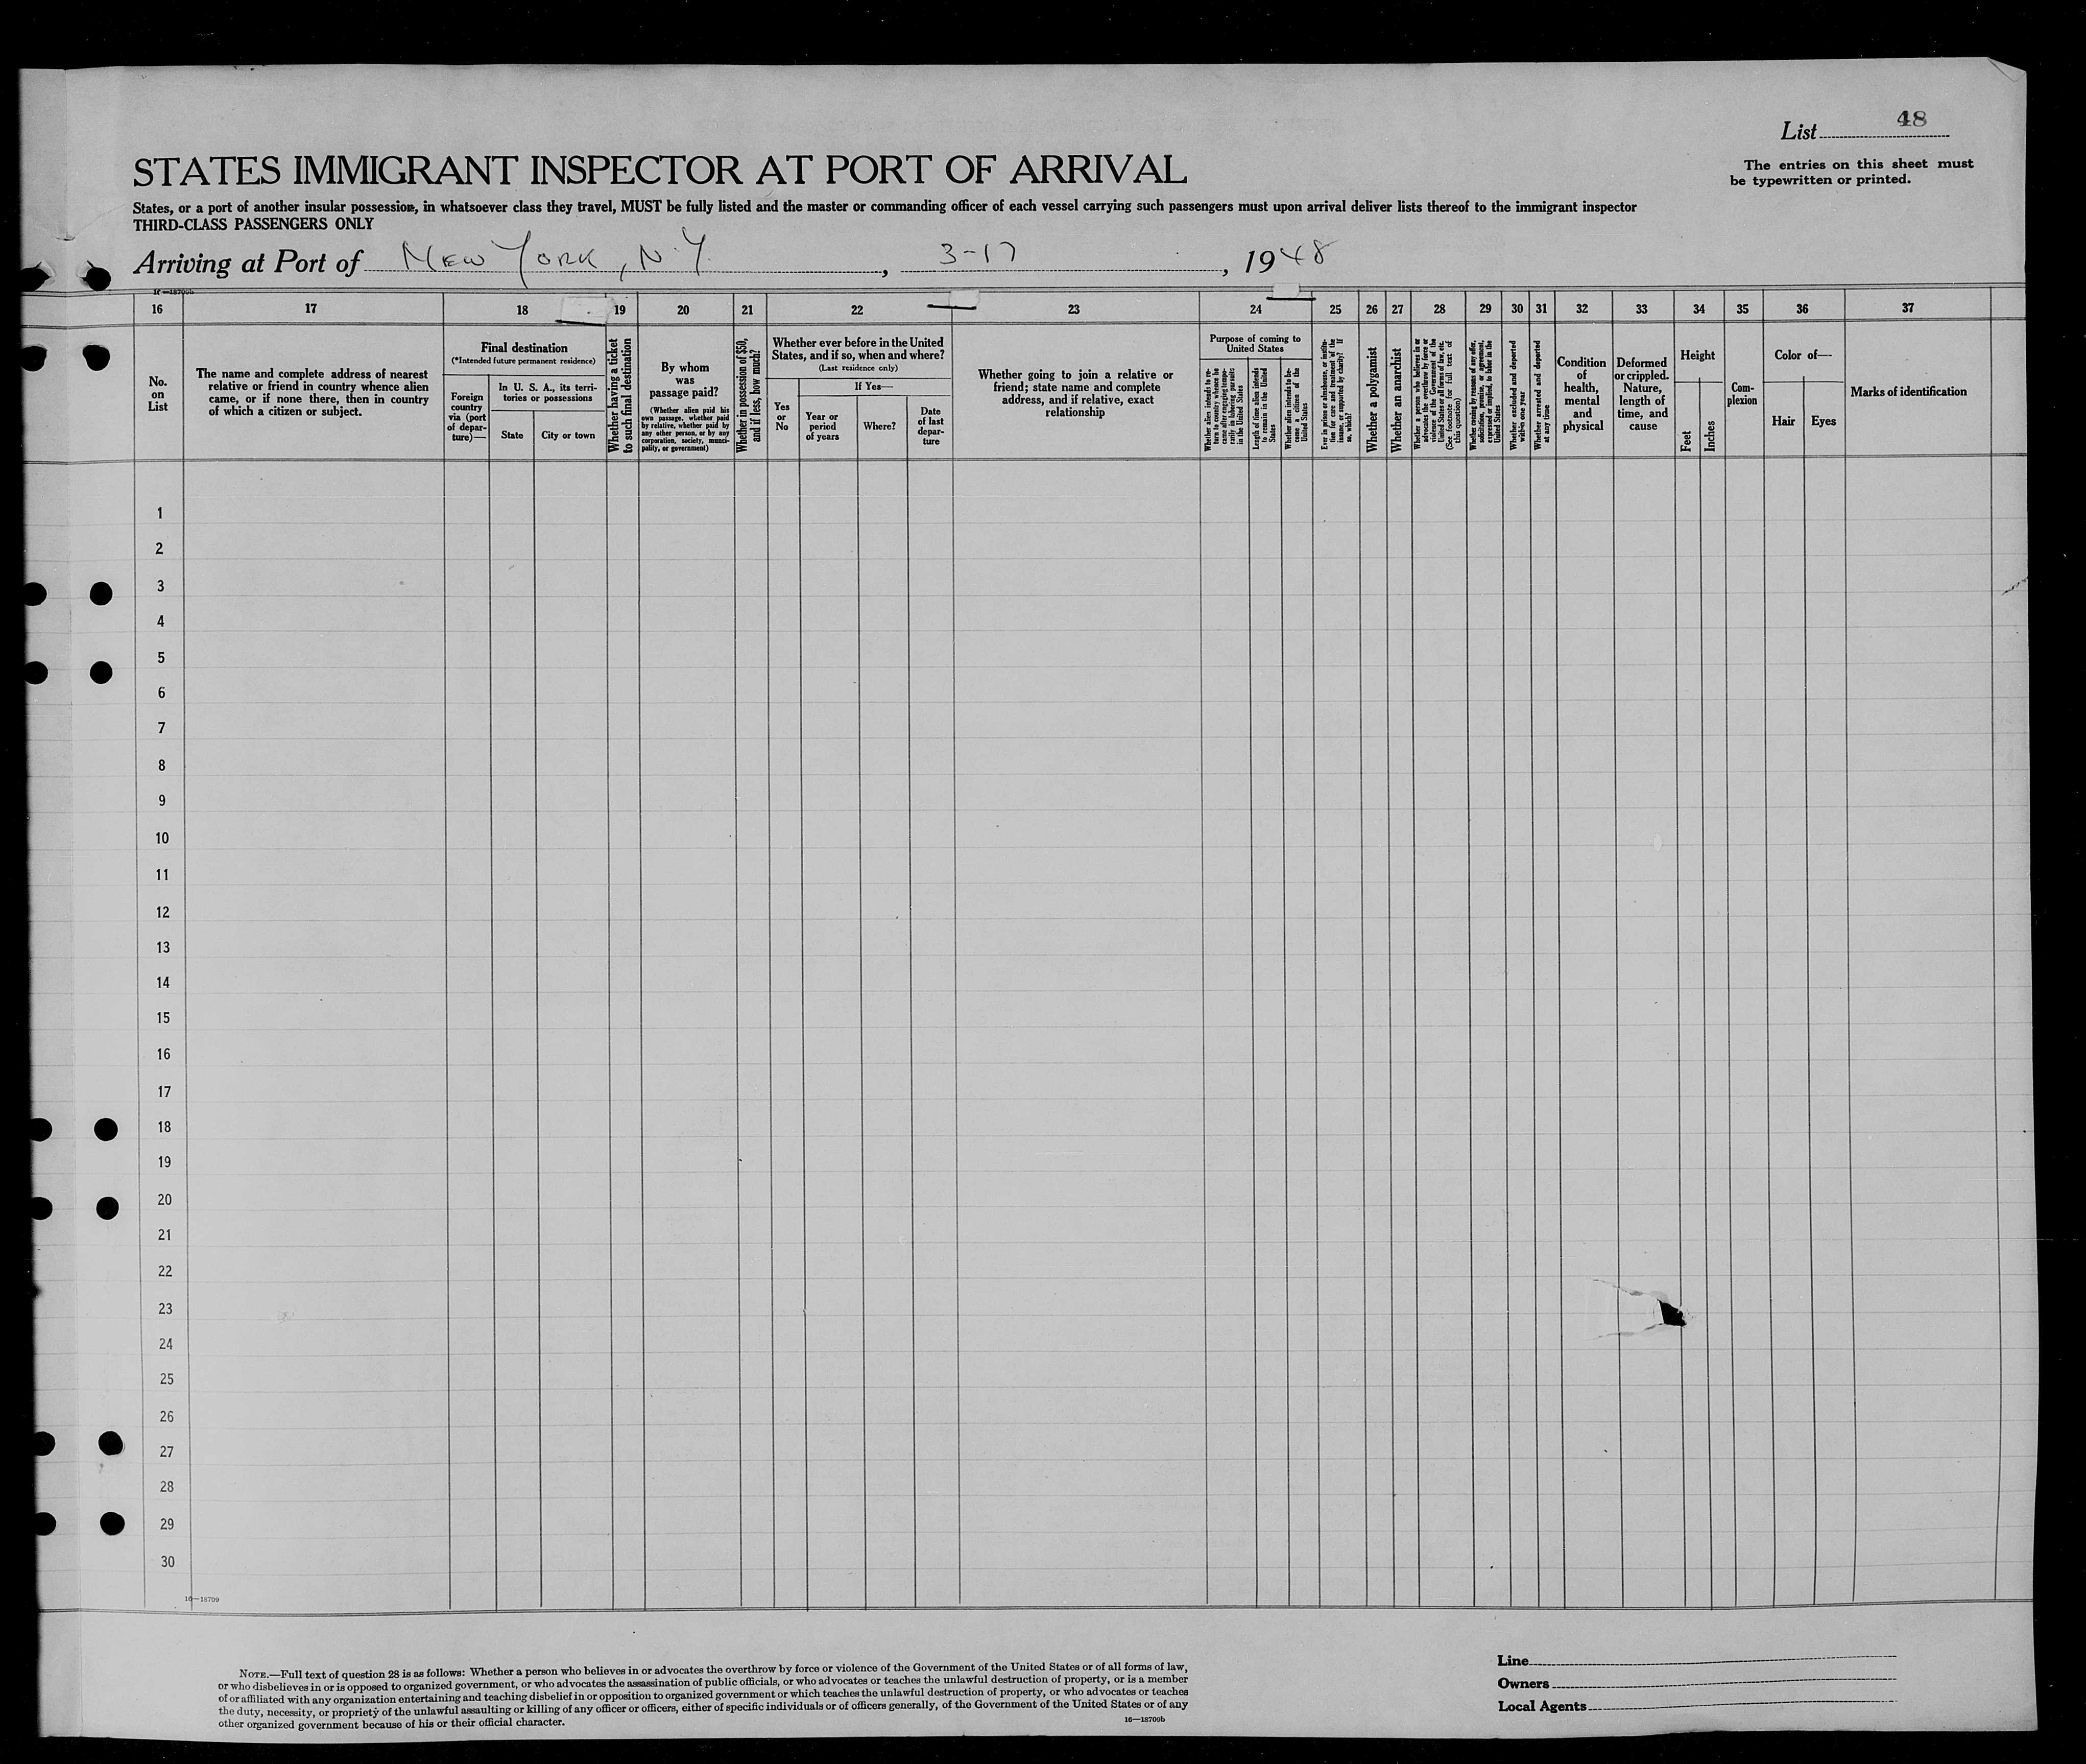 List 48
The entries on this sheet must
be typewritten or printed.
STATES IMMIGRANT INSPECTOR AT PORT OF ARRIVAL
States, or a port of another insular possession, in whatsoever class they travel, MUST be fully listed and the master or commanding officer of each vessel carrying such passengers must upon arrival deliver lists thereof to the immigrant inspector
THIRD-CLASS PASSENGERS ONLY
Arriving at Port of New York, N.Y. , 3-17 , 1948
16—18709b
16 17 18 19 20 21 22 23 24 25 26 27 28 29 30 31 32 33 34 35 36 37
No.
on
List
The name and complete address of nearest
relative or friend in country whence alien
came, or if none there, then in country
of which a citizen or subject.
Final destination
(*Intended future permanent residence)
Foreign
country
via (port
of depar-
ture)—
In U. S. A., its terri-
tories or possessions
State
City or town
Whether having a ticket
to such final destination
By whom
was
passage paid?
(Whether alien paid his
own passage, whether paid
by relative, whether paid by
any other person, or by any
corporation, society, munci-
pality, or government)
Whether in possession of $50,
and if less, how much?
Whether ever before in the United
States, and if so, when and where?
(Last residence only)
Yes
or
No
If Yes—
Year or
period
of years
Where?
Date
of last
depar-
ture
Whether going to join a relative or
friend; state name and complete
address, and if relative, exact
relationship
Purpose of coming to
United States
Whether alien intends to re-
turn to country whence he
came after engaging tempo-
rarily in laboring pursuits
in the United States
Length of time alien intends
to remain in the United
States
Whether alien intends to be-
come a citizen of the
United States
Ever in prison or almshouse, or institu-
tion for care and treatment of the
insane, or supported by charity? If
so, which?
Whether a polygamist
Whether an anarchist
Whether a person who believes in or
advocates the overthrow by force or
violence of the Government of the
United States or all forms of law, etc.
(See footnote for full text of
this question)
Whether coming by reason of any offer,
solicitation, promise, or agreement,
expressed or implied, to labor in the
United States
Whether excluded and deported
within one year
Whether arrested and deported
at any time
Condition
of
health,
mental
and
physical
Deformed
or crippled.
Nature,
length of
time, and
cause
Height
Feet
Inches
Com-
plexion
Color of—
Hair
Eyes
Marks of identification
1
2
3
4
5
6
7
8
9
10
11
12
13
14
15
16
17
18
19
20
21
22
23
24
25
26
27
28
29
30
16—18709
NOTE.—Full text of question 28 is as follows: Whether a person who believes in or advocates the overthrow by force or violence of the Government of the United States or of all forms of law,
or who disbelieves in or is opposed to organized government, or who advocates the assassination of public officials, or who advocates or teaches the unlawful destruction of property, or is a member
of or affiliated with any organization entertaining and teaching disbelief in or opposition to organized government or which teaches the unlawful destruction of property, or who advocates or teaches
the duty, necessity, or propriety of the unlawful assaulting or killing of any officer or officers, either of specific individuals or of officers generally, of the Government of the United States or of any
other organized government because of his or their official character.
16—18709b
Line
Owners
Local Agents